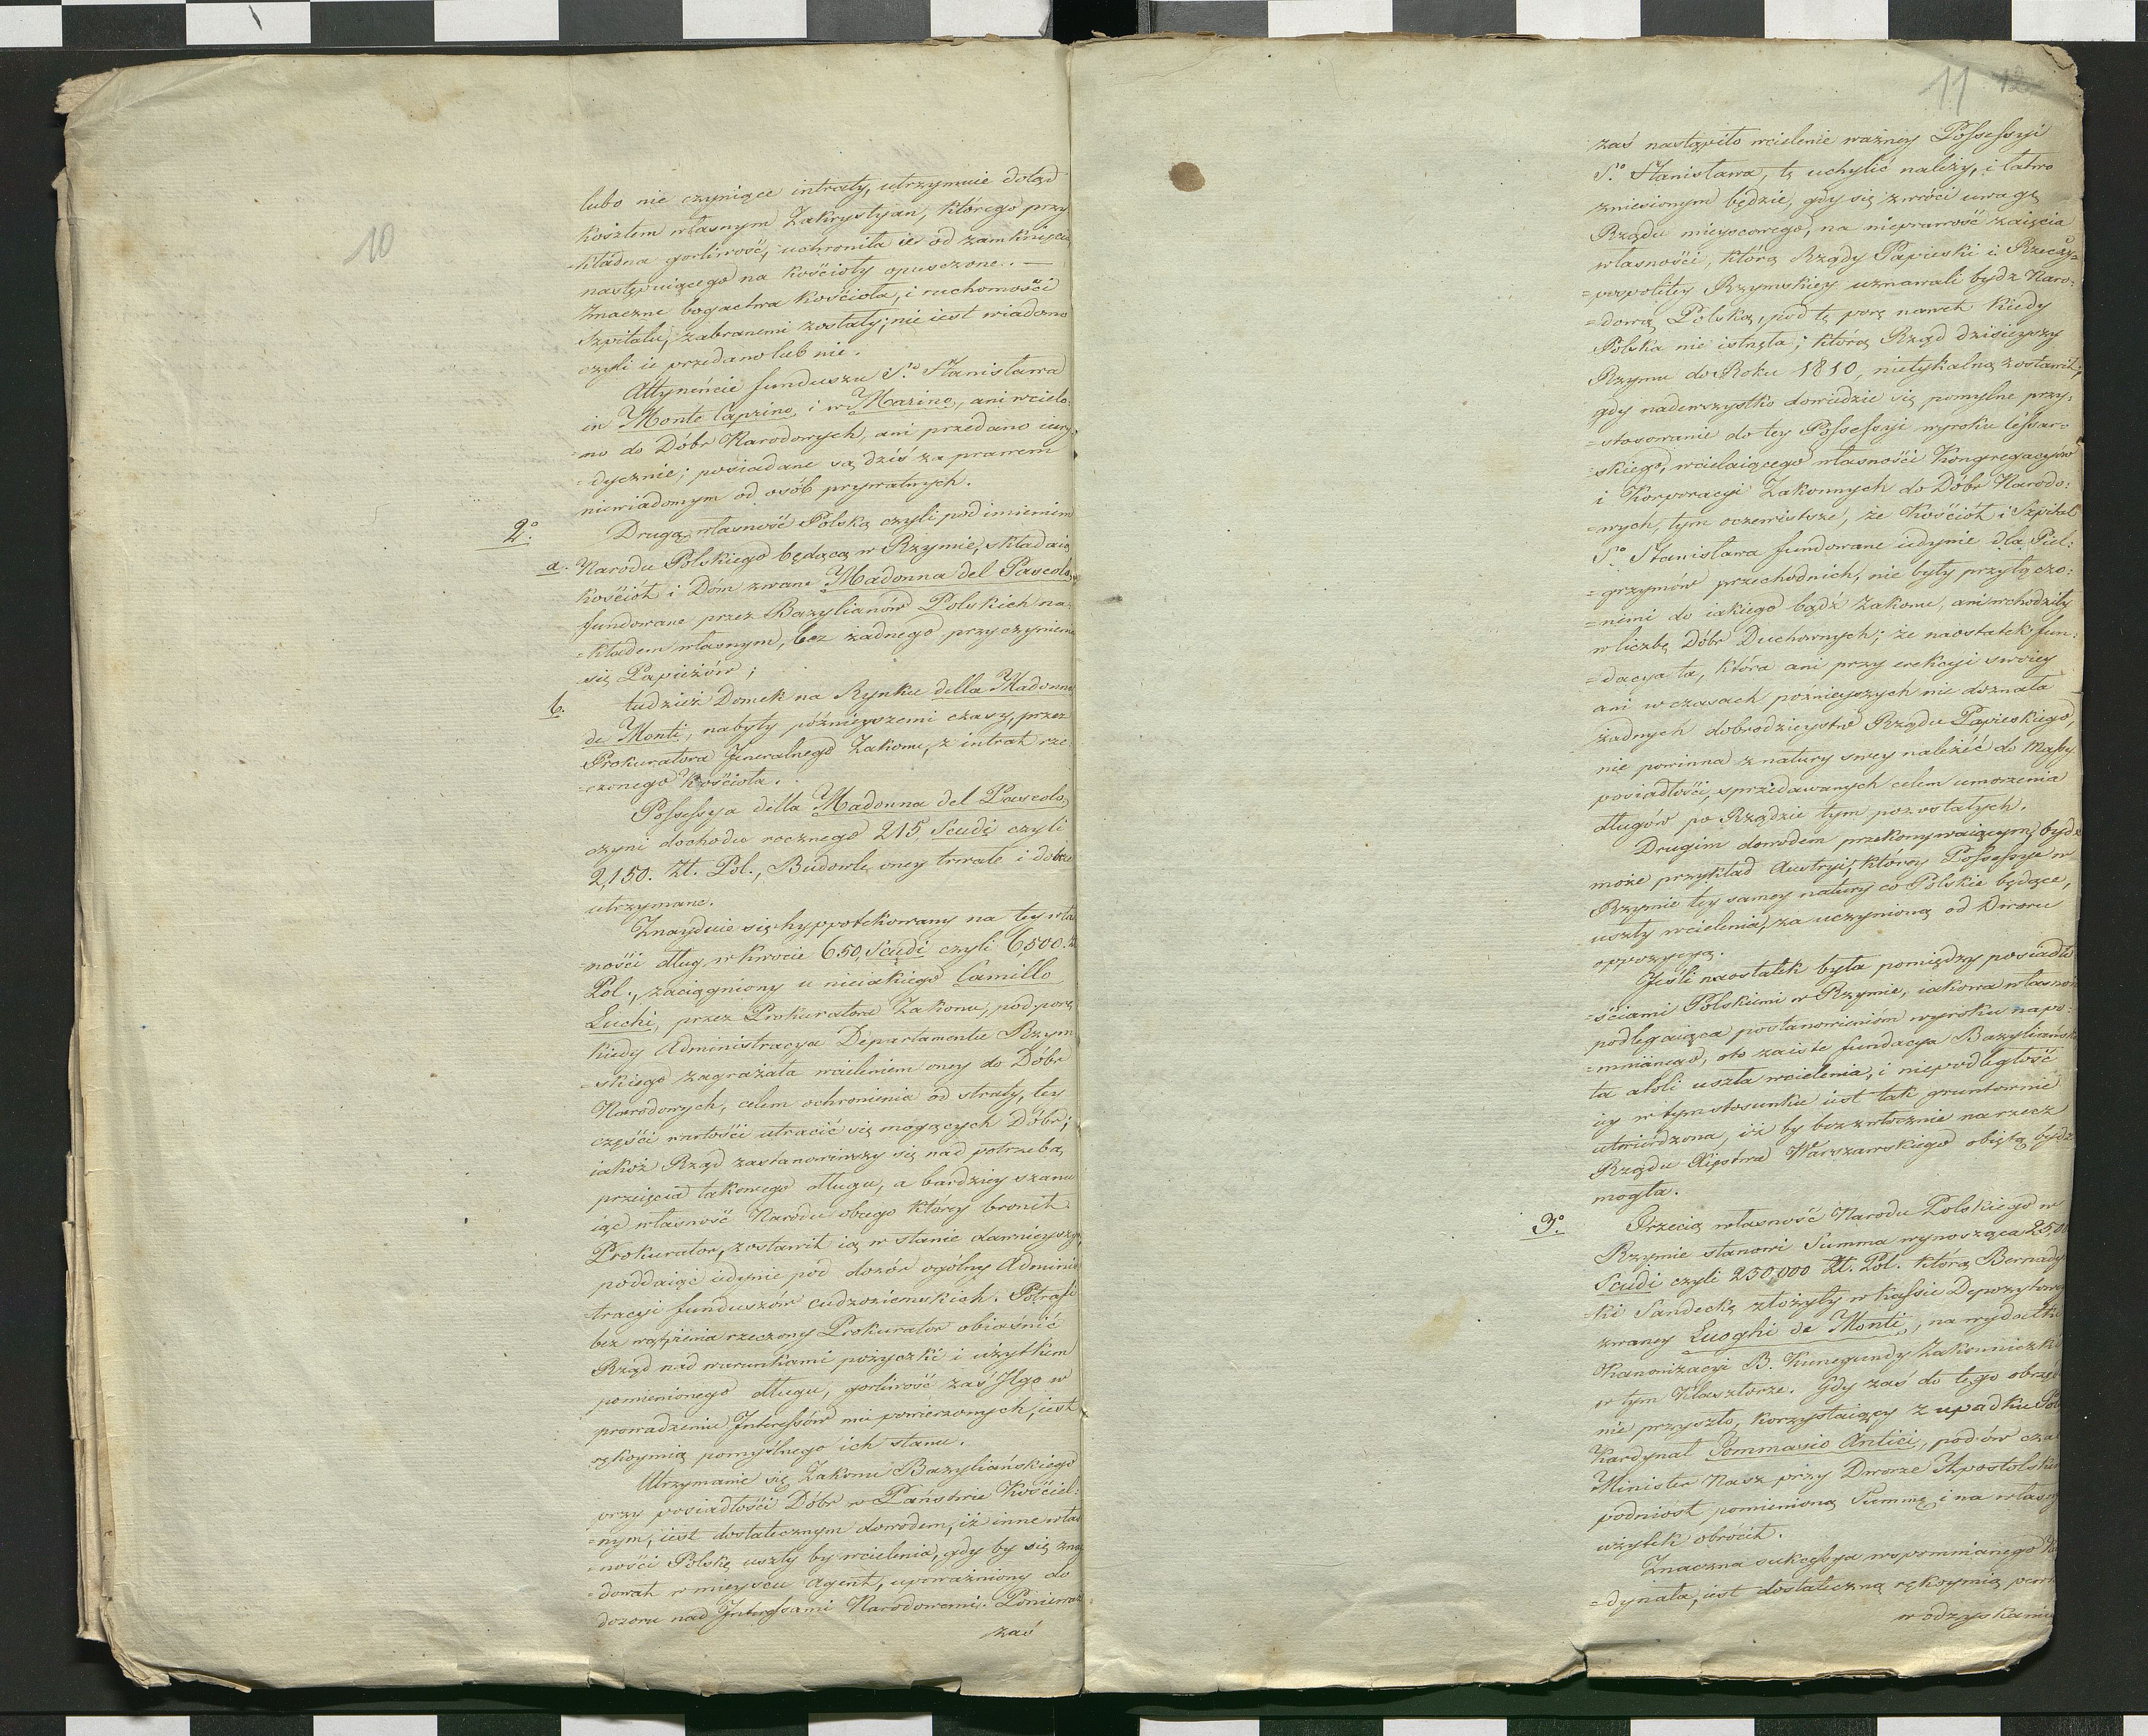 10
lubo nie czyniące intraty, utrzymuie dotąd
kosztem własnym Zakrystyan, którego przy
=kładna gorliwość, uchroniła ie od zamknięcia
następuiącego na kościoły opuszczone. —
Znaczne bogactwa kościoła, i ruchomości
Szpitala, zabranemi zostały; nie iest wiadomo
czyli ie przedano lub nie.
Attynencie funduszu S.º Stanisława
in Monte Caprino i w Marino, ani wcielo
=no do Dóbr Narodowych, ani przedano iury
=dycznie; posiadane są dziś za prawem
niewiadomym od osób prywatnych.
2º. Drugą własność Polską czyli pod imieniem
a. Narodu Polskiego będącą w Rzymie, składaią
kościół i Dóm zwane Madonna del Pascolo,
fundowane przez Bazylianów Polskich na=
=kładem własnym, bez żadnego przyczynienia
się Papieżów;
b. tudzież Domek na Rynku della Madonna
de Monti, nabyty późnieyszemi czasy, przez
Prokuratora Jeneralnego Zakonu, z intrat rze
=czonego kościoła.
Possessya della Madonna del Pascolo,
czyni dochodu rocznego 215 Scudi czyli
2,150. Zł. Pol., Budowle oney trwałe i dobrze
utrzymane.
Znayduie się hyppotekowany na tey wła
=ności dług, w kwocie 650, Scudi czyli 6,500. Zł
Pol., zaciągniony u nieiakiego Camillo
Luchi, przez Prokuratora Zakonu, pod porę
kiedy Administracya Departamentu Rzym
=skiego zagrażała wcieleniem oney do Dóbr
Narodowych, celem ochronienia od straty, tey
części wartości utracić się mogących Dóbr;
iakoż Rząd zastanowiwszy się nad potrzebą
przeięcia takowego długu, a bardziey szanu
iąc własność Narodu obcego którey bronił
Prokurator, zostawił ią w stanie dawnieyszym,
poddaiąc iedynie pod dozór ogólny Adminis
tracyi funduszów cudzoziemskich. Potrafi
bez wątpienia rzeczony Prokurator obiaśnić
Rząd nad warunkami pożyczki i użytkiem
pomienionego długu, gorliwość zaś Jego w
prowadzeniu Interessów mu powierzonych, iest
rękoymią pomyślnego ich stanu.
Utrzymanie się Zakonu Bazyliańskiego
przy posiadłości Dóbr w Państwie Kościel=
=nym, iest dostatecznym dowodem, iż inne włas
=ności Polskie uszły by wcielenia, gdy by się znay
=dował w mieyscu Agent, upoważniony do
dozoru nad Interessami Narodowemi. Ponieważ
zaś
11 12
zaś nastąpiło wcielenie ważney Possessyi
S.º Stanisława, tę uchylić należy, i łatwo
zniesionym będzie, gdy się zwróci uwagę
Rządu mieyscowego, na nieprawość zaięcia
własności, którą Rządy Papieski i Rzeczy=
=pospolitey Rzymskiey uznawali bydź Naro=
=dową Polską, pod tę porę nawet kiedy
Polska nie istnęła; którą Rząd dzisieyszy
Rzymu do Roku 1810, nietykalną zostawił;
gdy nadewszystko dowiedzie się pomylne przy=
=stosowanie do tey Possessyi wyroku Cessar=
=skiego, wcielaiącego własności Kongregacyów
i Korporacyi Zakonnych do Dóbr Narodo=
=wych, tym oczewistsze, że Kościół i Szpital
S.º Stanisława fundowane iedynie dla Piel=
=grzymów przechodnich, nie były przyłączo=
=nemi do iakiego bądź Zakonu, ani wchodziły
w liczbę Dóbr Duchownych; że naostatek fun=
=dacya ta, która ani przy erekcyi swoiey
ani w czasach poźnieyszych nie doznała
żadnych dobrodzieystw Rządu Papieskiego,
nie powinna z natury swey należéć do Massy
posiadłości, sprzedawanych celem umorzenia
długów po Rządzie tym pozostałych.
Drugim dowodem przekonywaiącym, bydź
może przykład Austryi, którey Possessye w
Rzymie tey samey natury co Polskie będące,
uszły wcielenia, za uczynioną od Dworu
oppozycyą.
Jeśli naostatek była pomiędzy posiadło
=ściami Polskiemi w Rzymie, iakowa własność
podlegaiąca postanowieniom wyroku napo=
=mnianego, oto zaiste fundacya Bazyliańska
ta atoli uszła wcielenia, i niepodległość
iey w tym stosunku iest tak gruntownie
utwierdzona, iż by bezzwłocznie na rzecz
Rządu Xięstwa Warszawskiego obiętą bydź
mogła.
3º. Trzecią własność Narodu Polskiego w
Rzymie stanowi Summa wynosząca 25,000
Scudi czyli 250,000 Zł. Pol. którą Bernardy
=ki Sandecką złożyły w kassie Depozytowey
zwaney Luoghi de Monti, na wydatki
Kanonizacyi B. Kunegundy Zakonniczki
w tym Klasztorze. Gdy zaś do tego obrzędu
nie przyszło, korzystaiący z upadku Pol
Kardynał Tommasio Antici, podów czas
Minister Nasz przy Dworze Apostolskim
podniósł pomienioną Summę i na własny
użytek obrócił.
Znaczna sukcessya wspomnianego Kar
=dynała, iest dostateczną rękoymią pewn
w odzyskaniu